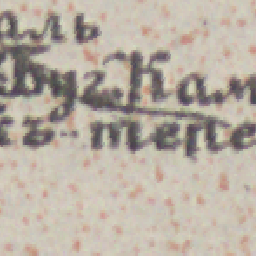 аль
Буг. Кам
къ тепе